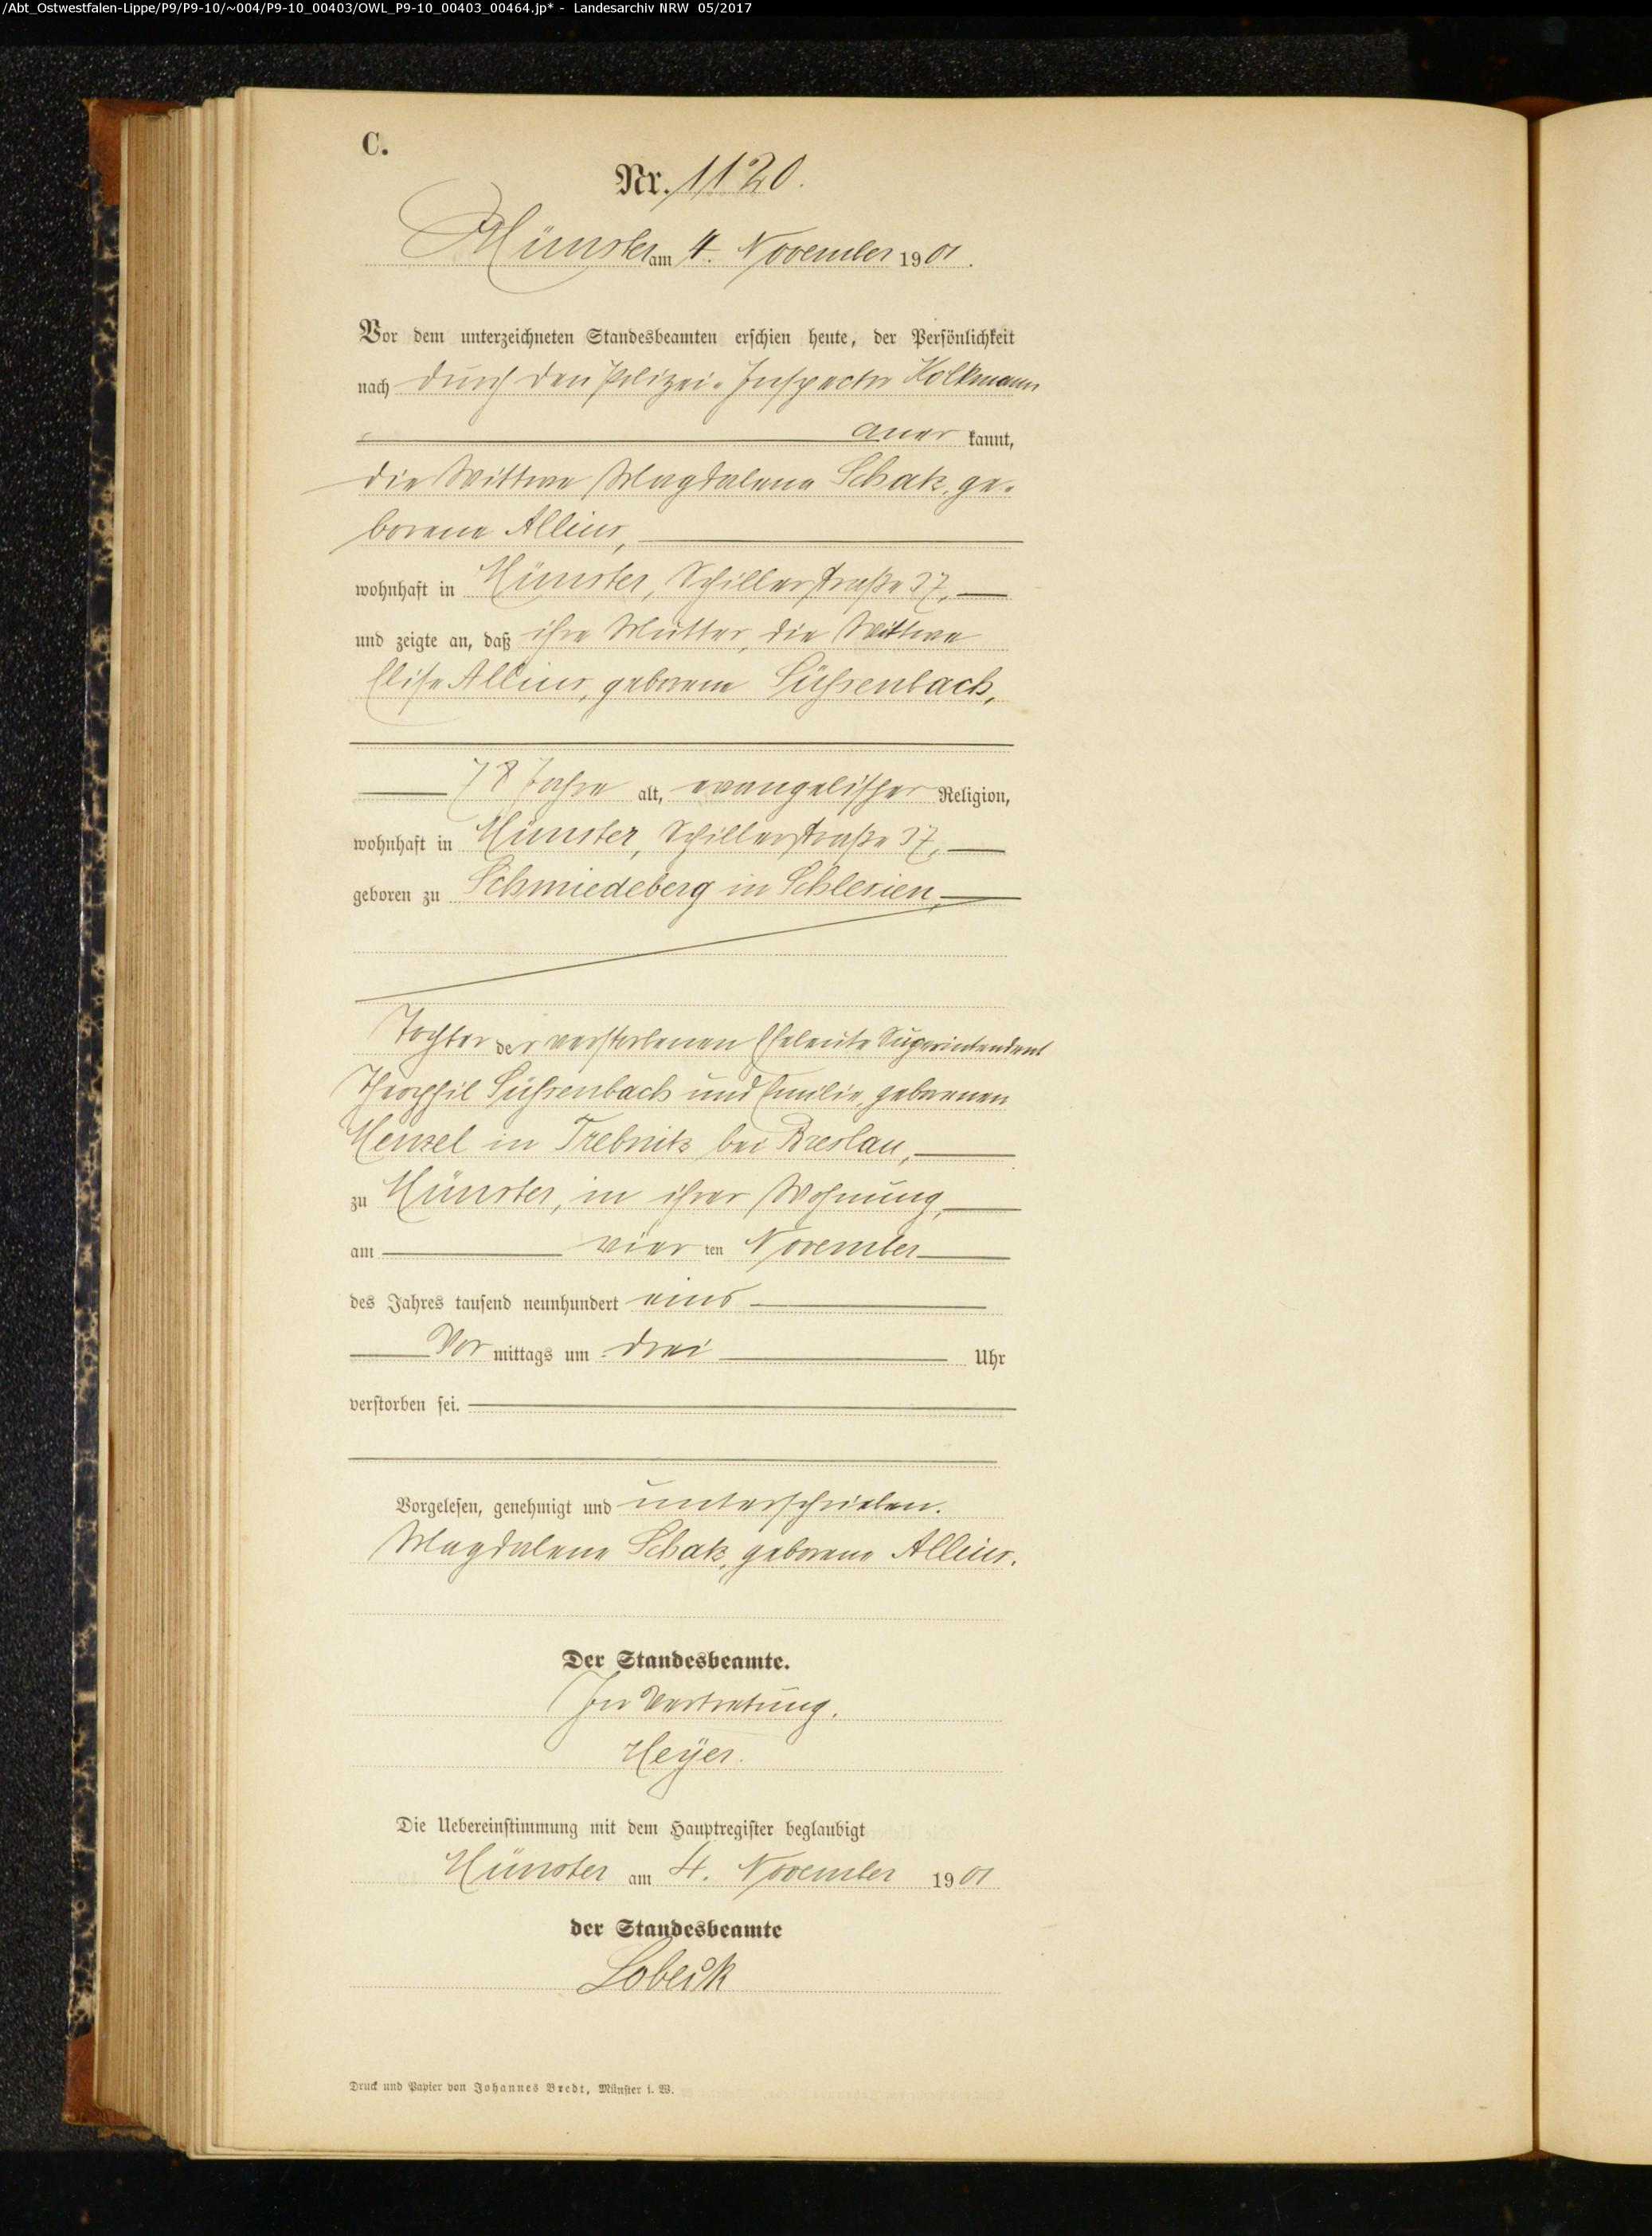 /Abt_Ostwestfalen-Lippe/P9/P9-10/~004/P9-10_00403/OWL_P9-10_00403_00464.jp* - Landesarchiv NRW 05/2017
C.
Nr. 1120.
Münster am 4. November 1901.
Vor dem unterzeichneten Standesbeamten erschien heute, der Persönlichkeit
nach durch den Polizei-Inspector Kolkmann
anerkannt,
die Wittwe Magdalena Schak, ge-
borene Allius,
wohnhaft in Münster, Schillerstraße 37,
und zeigte an, daß ihre Mutter, die Wittwe
Elise Allius, geborene Sührenbach,
78 Jahre alt, evangelischer Religion,
wohnhaft in Münster, Schillerstraße 37,
geboren zu Schmiedeberg in Schlesien,
Tochter der verstorbenen Eheleute Superintendent
Theophil Sührenbach und Emilie, geborenen
Menzel in Trebnitz bei Breslau,
zu Münster, in ihrer Wohnung,
am vierten November
des Jahres tausend neunhundert eins
Vormittags um drei Uhr
verstorben sei.
Vorgelesen, genehmigt und unterschrieben.
Magdalena Schak, geborene Allius.
Der Standesbeamte.
In Vertretung.
Heÿer.
Die Uebereinstimmung mit dem Hauptregister beglaubigt
Münster am 4. November 1901
der Standesbeamte
Lobeck
Druck und Papier von Johannes Bredt, Münster i. W.